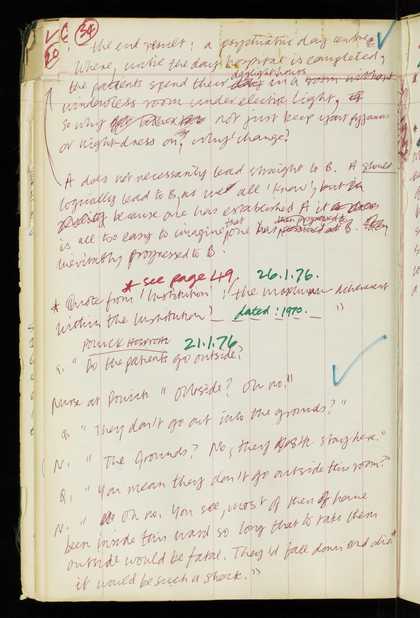 34
the end result: a psychiatric day centre
Where, until the day hospital is completed,
the patients spend their daylight hours in a
windowless room under electric light,
so why not just keep your pyjamas
or night-dress on, why change?
A does not necessarily lead straight to B. A should
logically lead to B, as we all 'know', but
because one has established A it
is all too easy to imagine that one has B.
inevitably progressed to B.
* see page 49. 26.1.76.
* Quote from 'Institution': the maximum deterrent
within the Institution! dated: 1970. "
POWICK HOSPITAL 21.1.76
Q. "Do the patients go outside?
Nurse at Powick "Outside? Oh no."
Q. "They don't go out into the grounds?"
N. "The Grounds? No, they stay here."
Q. "You mean they don't go outside this room?"
N. "Oh no. You see, most of them have
been inside this ward so long that to take them
outside would be fatal. They'd fall down and die"
it would be such a shock."